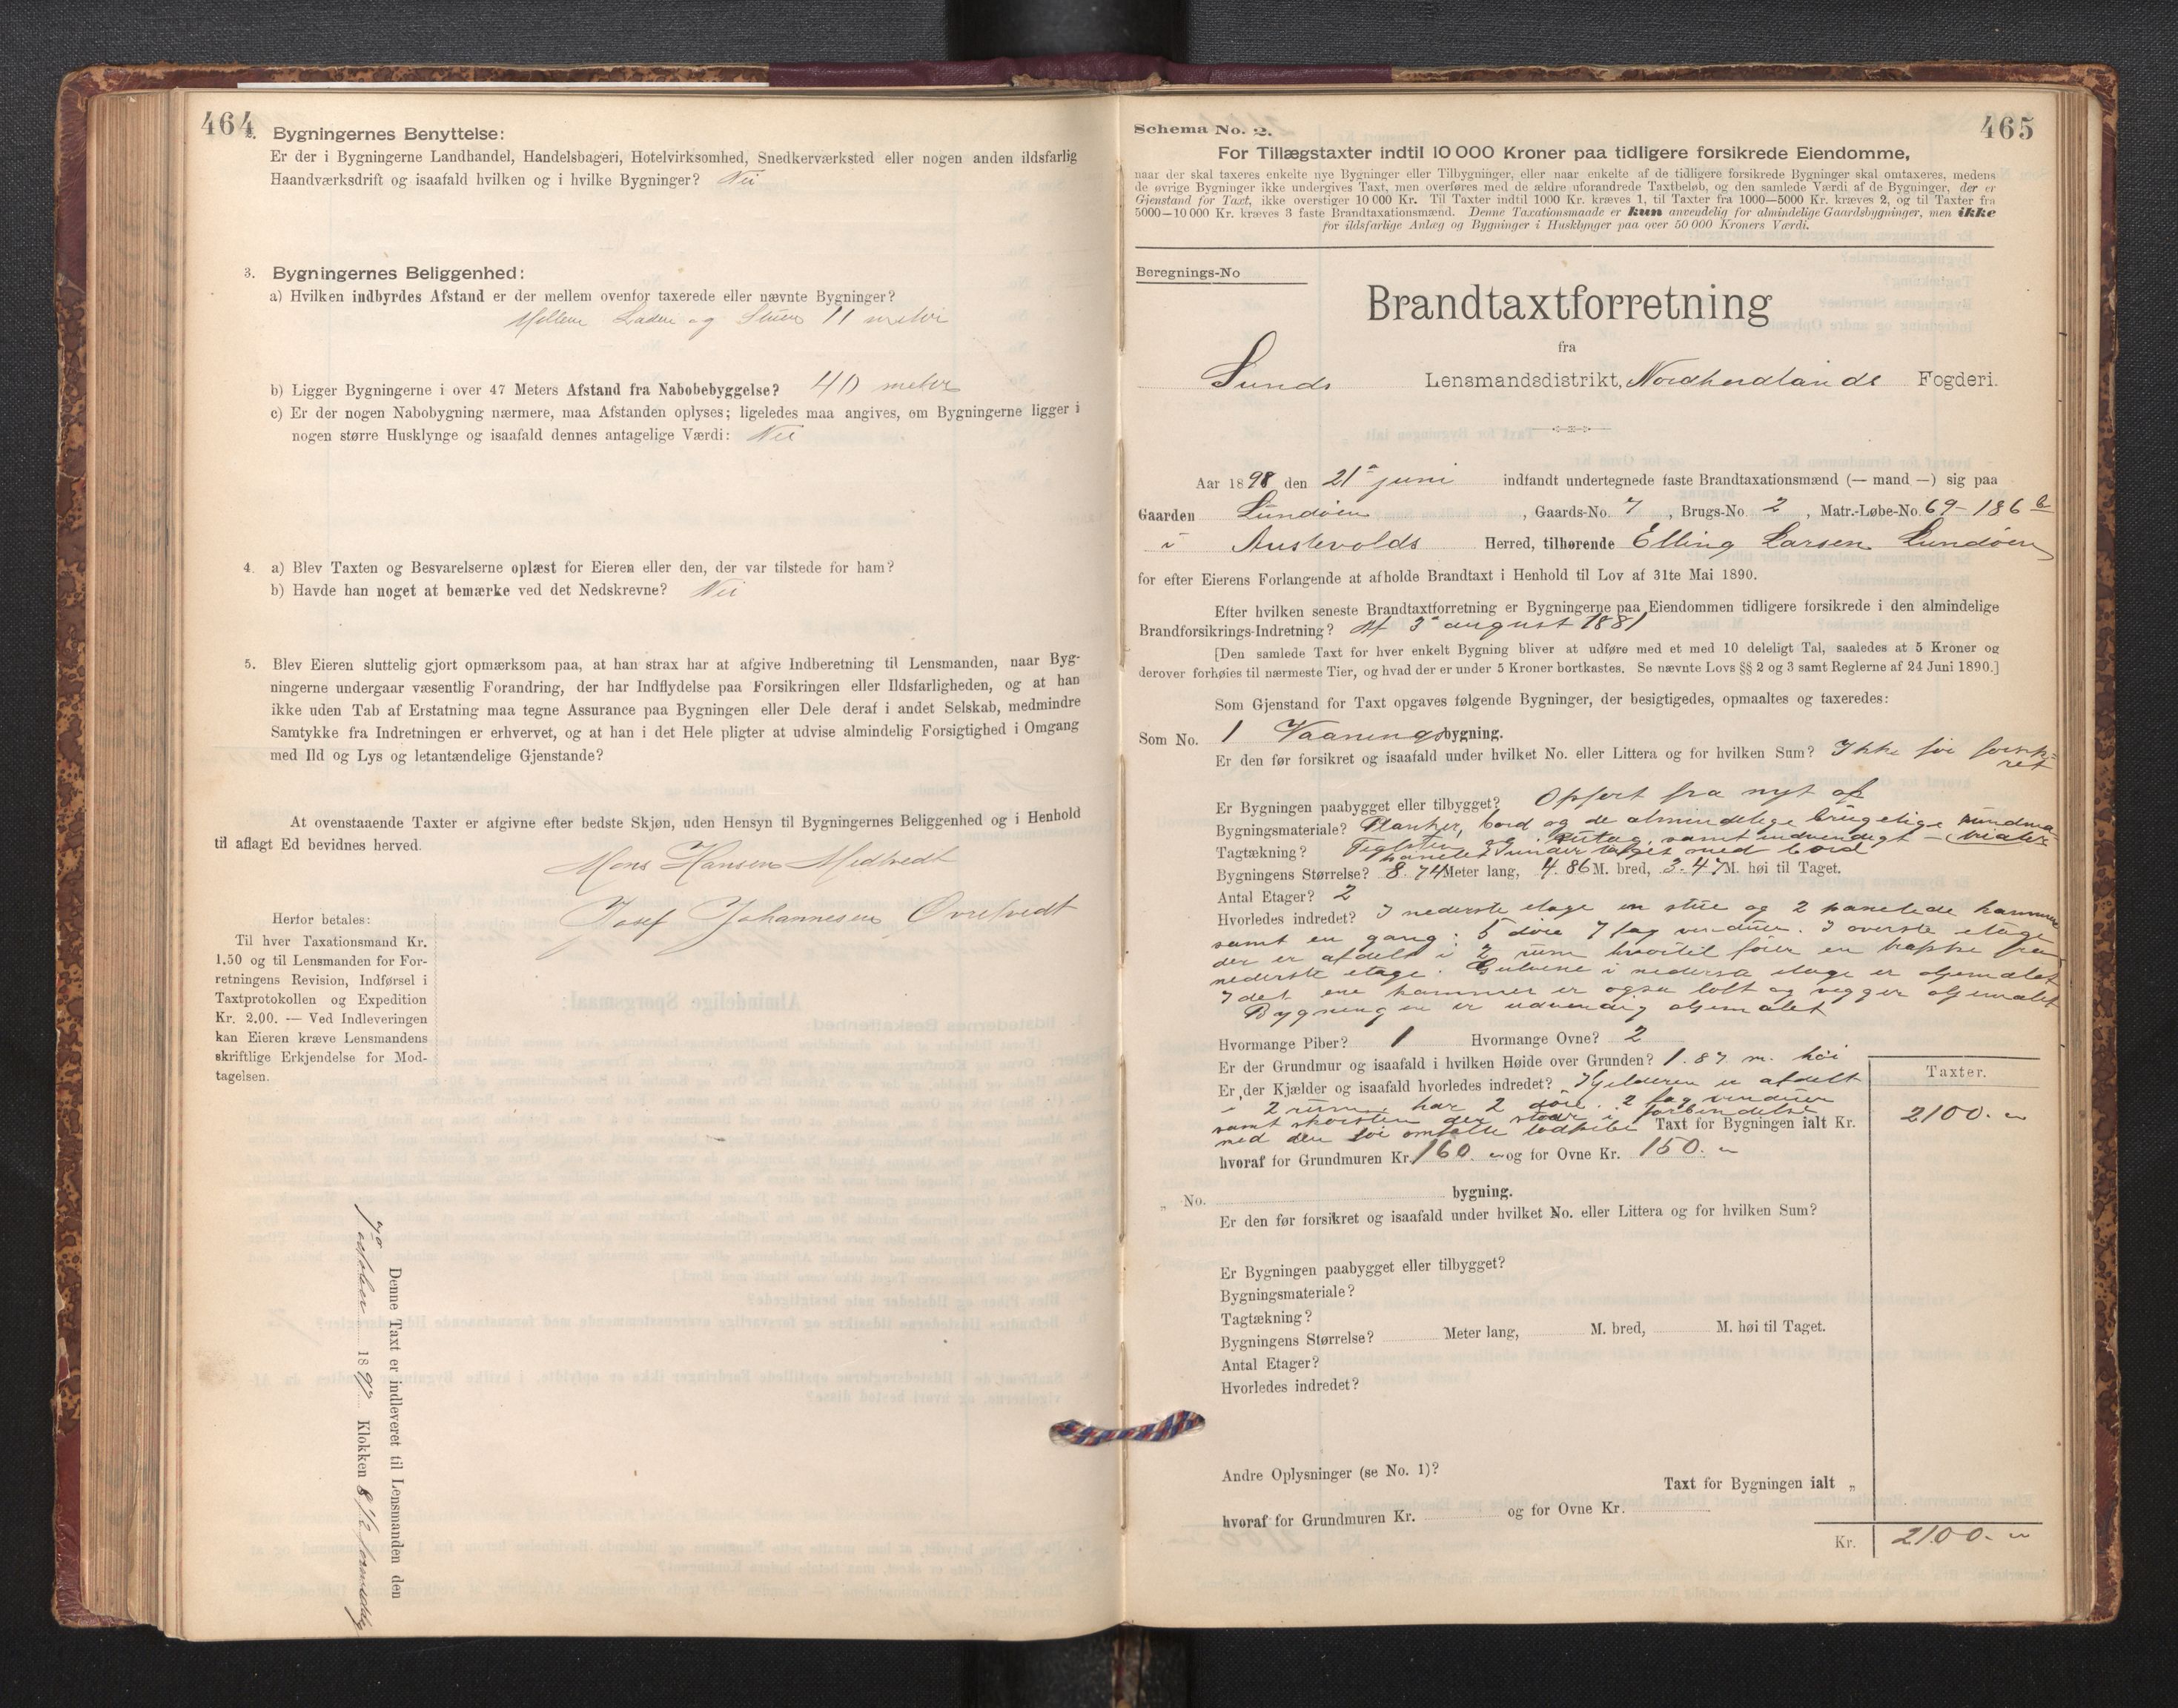 464
2. Bygningernes Benyttelse:
Er der i Bygningerne Landhandel, Handelsbageri, Hotelvirksomhed, Snedkerværksted eller nogen anden ildsfarlig
Haandværksdrift og isaafald hvilken og i hvilke Bygninger? Nei
3. Bygningernes Beliggenhed:
a) Hvilken indbyrdes Afstand er der mellem ovenfor taxerede eller nævnte Bygninger?
Mellem Laden og Stuen 11 meter
b) Ligger Bygningerne i over 47 Meters Afstand fra Nabobebyggelse? 40 meter
c) Er der nogen Nabobygning nærmere, maa Afstanden oplyses; ligeledes maa angives, om Bygningerne ligger i
nogen større Husklynge og isaafald dennes antagelige Værdi: Nei
4. a) Blev Taxten og Besvarelserne oplæst for Eieren eller den, der var tilstede for ham?
b) Havde han noget at bemærke ved det Nedskrevne? Nei
5. Blev Eieren sluttelig gjort opmærksom paa, at han strax har at afgive Indberetning til Lensmanden, naar Byg-
ningerne undergaar væsentlig Forandring, der har Indflydelse paa Forsikringen eller Ildsfarligheden, og at han
ikke uden Tab af Erstatning maa tegne Assurance paa Bygningen eller Dele deraf i andet Selskab, medmindre
Samtykke fra Indretningen er erhvervet, og at han i det Hele pligter at udvise almindelig Forsigtighed i Omgang
med Ild og Lys og letantændelige Gjenstande?
At ovenstaaende Taxter er afgivne efter bedste Skjøn, uden Hensyn til Bygningernes Beliggenhed og i Henhold
til aflagt Ed bevidnes herved.
Mons Hansen Medtvedt
Josef Johannesen Øvretvedt
Herfor betales:
Til hver Taxationsmand Kr.
1.50 og til Lensmanden for For-
retningens Revision, Indførsel i
Taxtprotokollen og Expedition
Kr. 2.00. — Ved Indleveringen
kan Eieren kræve Lensmandens
skriftlige Erkjendelse for Mod-
tagelsen.
Denne Taxt er indleveret til Lensmanden den
7de oktober 1898 Klokken 8 1/2 formiddag
465
Schema No. 2.
For Tillægstaxter indtil 10 000 Kroner paa tidligere forsikrede Eiendomme,
naar der skal taxeres enkelte nye Bygninger eller Tilbygninger, eller naar enkelte af de tidligere forsikrede Bygninger skal omtaxeres, medens
de øvrige Bygninger ikke undergives Taxt, men overføres med de ældre uforandrede Taxtbeløb, og den samlede Værdi af de Bygninger, der er
Gjenstand for Taxt, ikke overstiger 10 000 Kr. Til Taxter indtil 1000 Kr. kræves 1, til Taxter fra 1000—5000 Kr. kræves 2, og til Taxter fra
5000—10 000 Kr. kræves 3 faste Brandtaxationsmænd. Denne Taxationsmaade er kun anvendelig for almindelige Gaardsbygninger, men ikke
for ildsfarlige Anlæg og Bygninger i Husklynger paa over 50 000 Kroners Værdi.
Beregnings-No
Brandtaxtforretning
fra
Sunds Lensmandsdistrikt, Nordhordlands Fogderi.
Aar 1898 den 21de juni indfandt undertegnede faste Brandtaxationsmænd (— mand —) sig paa
Gaarden Lundøen, Gaards-No. 7, Brugs-No. 2, Matr.-Løbe-No. 69-186 b
i Austevolds Herred, tilhørende Elling Larsen Lundøen
for efter Eierens Forlangende at afholde Brandtaxt i Henhold til Lov af 31te Mai 1890.
Efter hvilken seneste Brandtaxtforretning er Bygningerne paa Eiendommen tidligere forsikrede i den almindelige
Brandforsikrings-Indretning? Af 3de august 1881
[Den samlede Taxt for hver enkelt Bygning bliver at udføre med et med 10 deleligt Tal, saaledes at 5 Kroner og
derover forhøies til nærmeste Tier, og hvad der er under 5 Kroner bortkastes. Se nævnte Lovs §§ 2 og 3 samt Reglerne af 24 Juni 1890.]
Som Gjenstand for Taxt opgaves følgende Bygninger, der besigtigedes, opmaaltes og taxeredes:
Som No. 1 Vaaningsbygning.
Er den før forsikret og isaafald under hvilket No. eller Littera og for hvilken Sum? Ikke før forsik-
ret
Er Bygningen paabygget eller tilbygget? Opført fra nyt af
Bygningsmateriale? Planker, bord og de almindelige brugelige rundma-
terialer
Tagtækning? Teglsten samt indvendigt
panelet under taget med bord
Bygningens Størrelse? 8.74 Meter lang, 4.86 M. bred, 3.47 M. høi til Taget.
Antal Etager? 2
Hvorledes indret? I nederste etage en stue og 2 panelede kammer
samt en gang: 5 døre 7 fag vinduer. I øverste etage
der er afdelt i 2 rum hvortil fører en trappe fra
nederste etage. Gulvene i nederste etage er oljemalet
I det ene kammer er ogsaa loft og vegger oljemalet
Bygningen er udvendig oljemalet
Hvormange Piber? 1 Hvormange Ovne? 2
Er der Grundmur og isaafald i hvilken Høide over Grunden? 1.87 m. høi
Er der Kjælder og isaafald hvorledes indredet? Kjelderen er afdelt
i 2 rum har 2 døre. 2 fag vinduer
samt skorsten der staar i forbindelse
med den før omtalte lodpibe Taxt for Bygningen ialt Kr.
Taxter.
2100. „
hvoraf for Grundmuren Kr. 160. „ og for Ovne Kr. 150. „
„ No. bygning.
Er den før forsikret og isaafald under hvilket No. eller Littera og for hvilken Sum?
Er Bygningen paabygget eller tilbygget?
Bygningsmateriale?
Tagtækning?
Bygningens Størrelse? Meter lang, M. bred, M. høi til Taget.
Antal Etager?
Hvorledes indret?
Andre Oplysninger (se No. 1)?
Taxt for Bygningen ialt „
hvoraf for Grundmuren Kr. og for Ovne Kr.
Kr. 2100. „